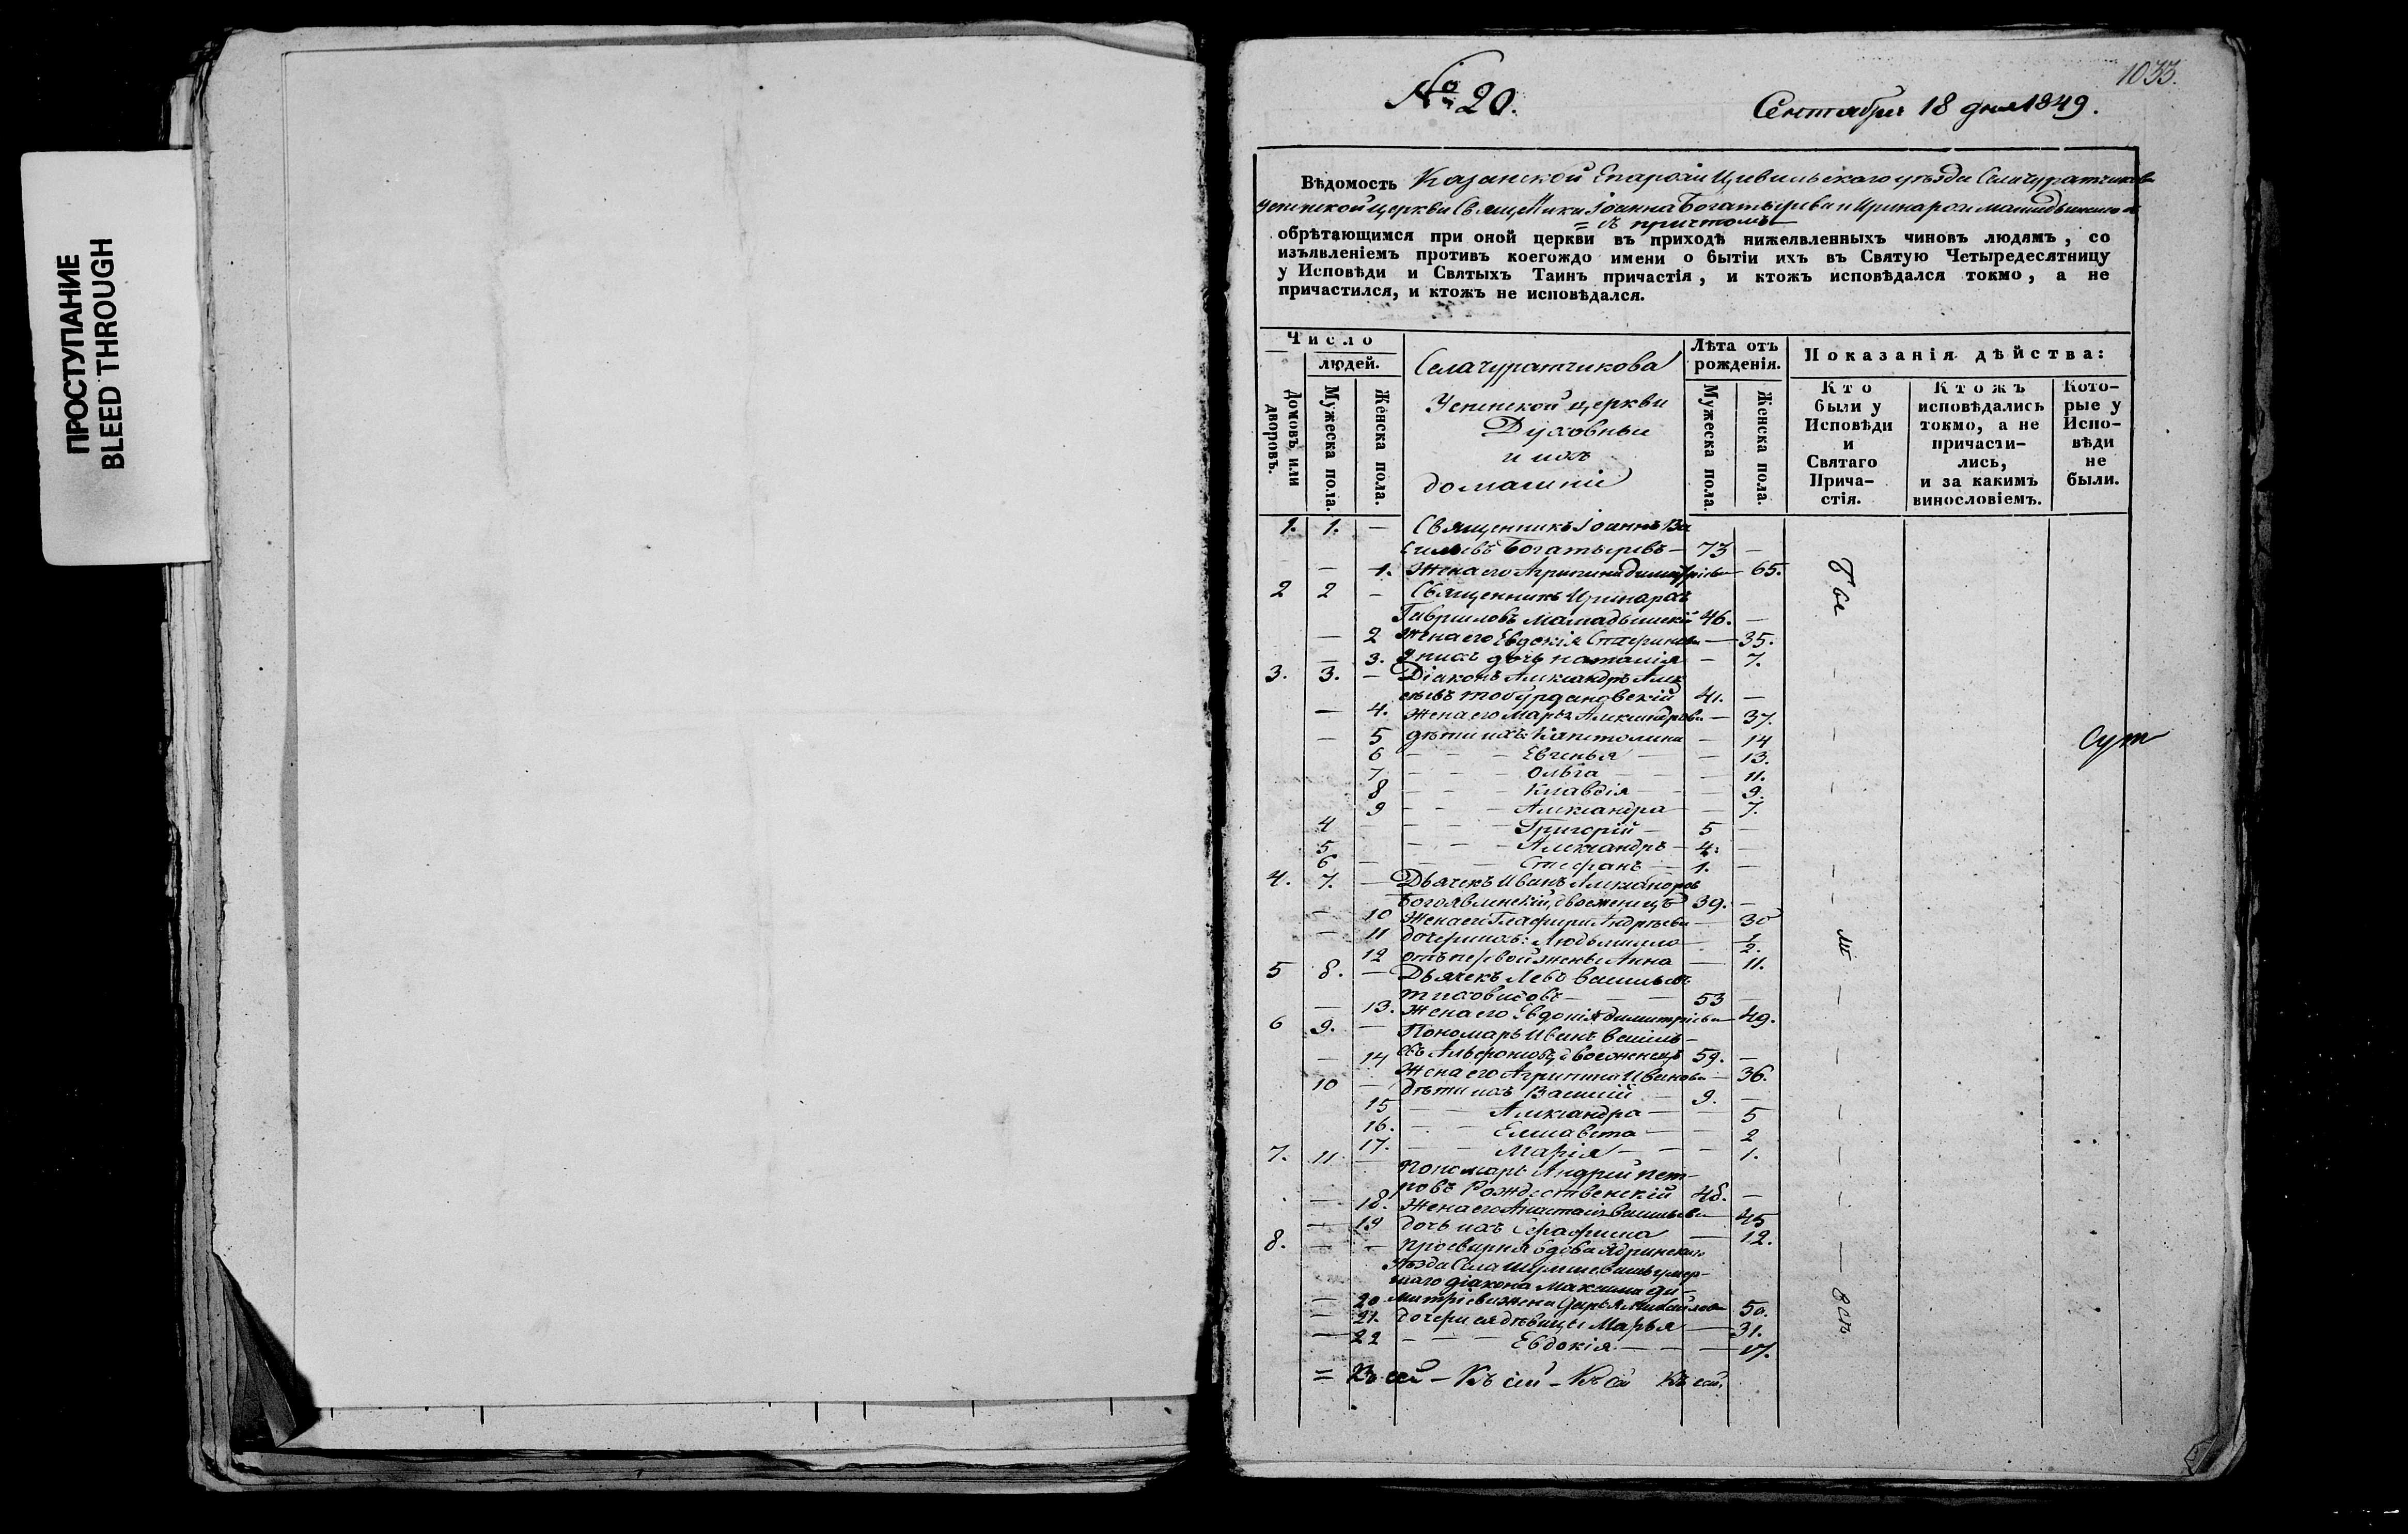 ПРОСТУПАНИЕ
BLEED THROUGH
1033.
№ 20.
Сентября 18 дня 1849.
Вѣдомость Казанской Епархіи Цивильскаго уѣзда Села Чуратчикова
Успенской церкви Священники Іоанна Богатырева и Иринарха Мамадышскаго
= съ причтомъ
обрѣтающимся при оной церкви въ приходѣ нижеявленныхъ чиновъ людямъ, со
изъявленіемъ противъ коегождо имени о бытіи ихъ въ Святую Четыредесятницу
у Исповѣди и Святыхъ Таинъ причастія, и ктожъ исповѣдался токмо, а не
причастился, и ктожъ не исповѣдался.
Число
людей.
Домовъ или дворовъ.
Мужеска пола.
Женска пола.
Села Чуратчикова
Успенской церкви
Духовныи
и ихъ
домашніи
Лѣта отъ рожденія.
Мужеска пола.
Женска пола.
Показанія дѣйства:
Кто были у Исповѣди и Святаго Прича-стія.
Ктожъ исповѣдались токмо, а не причасти-лись, и за какимъ винословіемъ.
Кото-рые у Испо-вѣди не были.
1. 1. — Священникъ Іоаннъ Ва
сильевъ Богатыревъ — 73 —
— 1. Жена его Агрипина Димитріева — 65.
2 2 — Священникъ Иринархъ
Гавриловъ Мамадышскій 46. —
— 2 Жена его Евдокія Стефанова — 35.
— 3. У нихъ дочь Наталія — 7.
3. 3. — Діаконъ Александръ Алек
сѣевъ Тобурдановскій 41. —
— 4. Жена его Марья Александрова — 37.
— 5 дѣти ихъ: Капитолина — 14
6 — — — Евгенья — — 13.
7 — — — Ольга — — 11.
8 — — — Клавдія — — 9.
9 — — — Александра — — 7.
4 — — — Григорій — 5 —
5 — — — Александръ — 4. —
6 — — — Стефанъ — 1. —
4. 7. — Дьячекъ Иванъ Александровъ
Богоявленскій, двоеженецъ 39. —
— 10 Жена его Глафира Андреева — 30
— 11 дочери ихъ: Людьмилла — 1/2.
12 отъ первой жены Анна — 11.
5 8. — Дьячекъ Левъ Васильевъ
Тиховидовъ — — 53 —
— 13. Жена его Евдокія Димитріева — 49.
6 9. — Пономарь Иванъ Василь-
евъ двоеженецъ 59. —
— 14 Жена его Агрипина Иванова — 36.
10 — дѣти ихъ Василій — 9. —
15 — — Александра — — 5
16. — — Елисавета — — 2
17. — — Марія — — — 1.
7. 11 — Пономарь Андрей Пет-
ровъ Рождественскій 48. —
— 18. Жена его Анастасія Васильева — 45
— 19 дочь ихъ Серафима — 12.
8. — — Просвирня вдова Ядринскаго
уѣзда Села умер-
шаго діакона Максима Ди-
— 20 митріева жена Дарья Михайлова 50.
— 21. дочери ея дѣвицы Марья — 31.
— 22 — — — Евдокія — — — 17.
бы
—
—
—
ли
—
—
—
вси
Сут